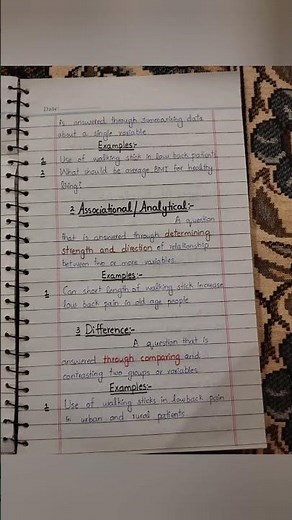 Date:
A answered through summarising data
about a single variable
Examples:-
1 Use of walking stick in low back patients
2 What should be average BMI for healthy
living?
2 Associational/Analytical:-
A question
that is answered through determining
strength and direction of relationship
between two or more variables.
Examples:-
1 Can short length of walking stick increase
low back pain in old age people
3 Difference:-
A question that is
answered through comparing and
contrasting two groups or variables
Examples:-
1 Use of walking sticks in lowback pain
in urban and rural patients